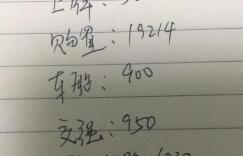 上牌:
购置:19214
车船:900
交强:950